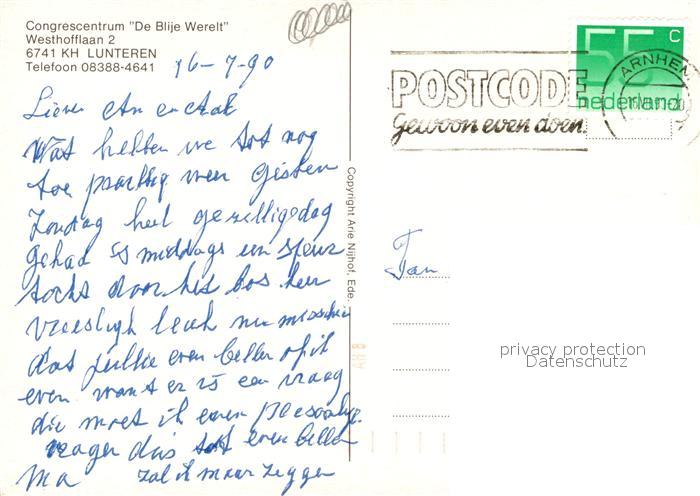 Congrescentrum "De Blije Werelt"
Westhofflaan 2
6741 KH LUNTEREN
Telefoon 08388-4641
16-7-90
Lieven An en
Wat hebben we tot nog
toe prachtig weer Gisteren
Zondag heel gezelligedag
gehad 's middags een speur
tocht door het bos heen
vreeslijk leuk nu misschien
dat jullie even bellen of ik
even want er is een vraag
die moet ik even persoonlijk
vragen dus tot even bellen
Ma zal ik maar zeggen
Copyright Arie Nijhof, Ede.
55 c
nederland
ARNHEM
POSTCODE
gewoon even doen
Fam
privacy protection
Datenschutz